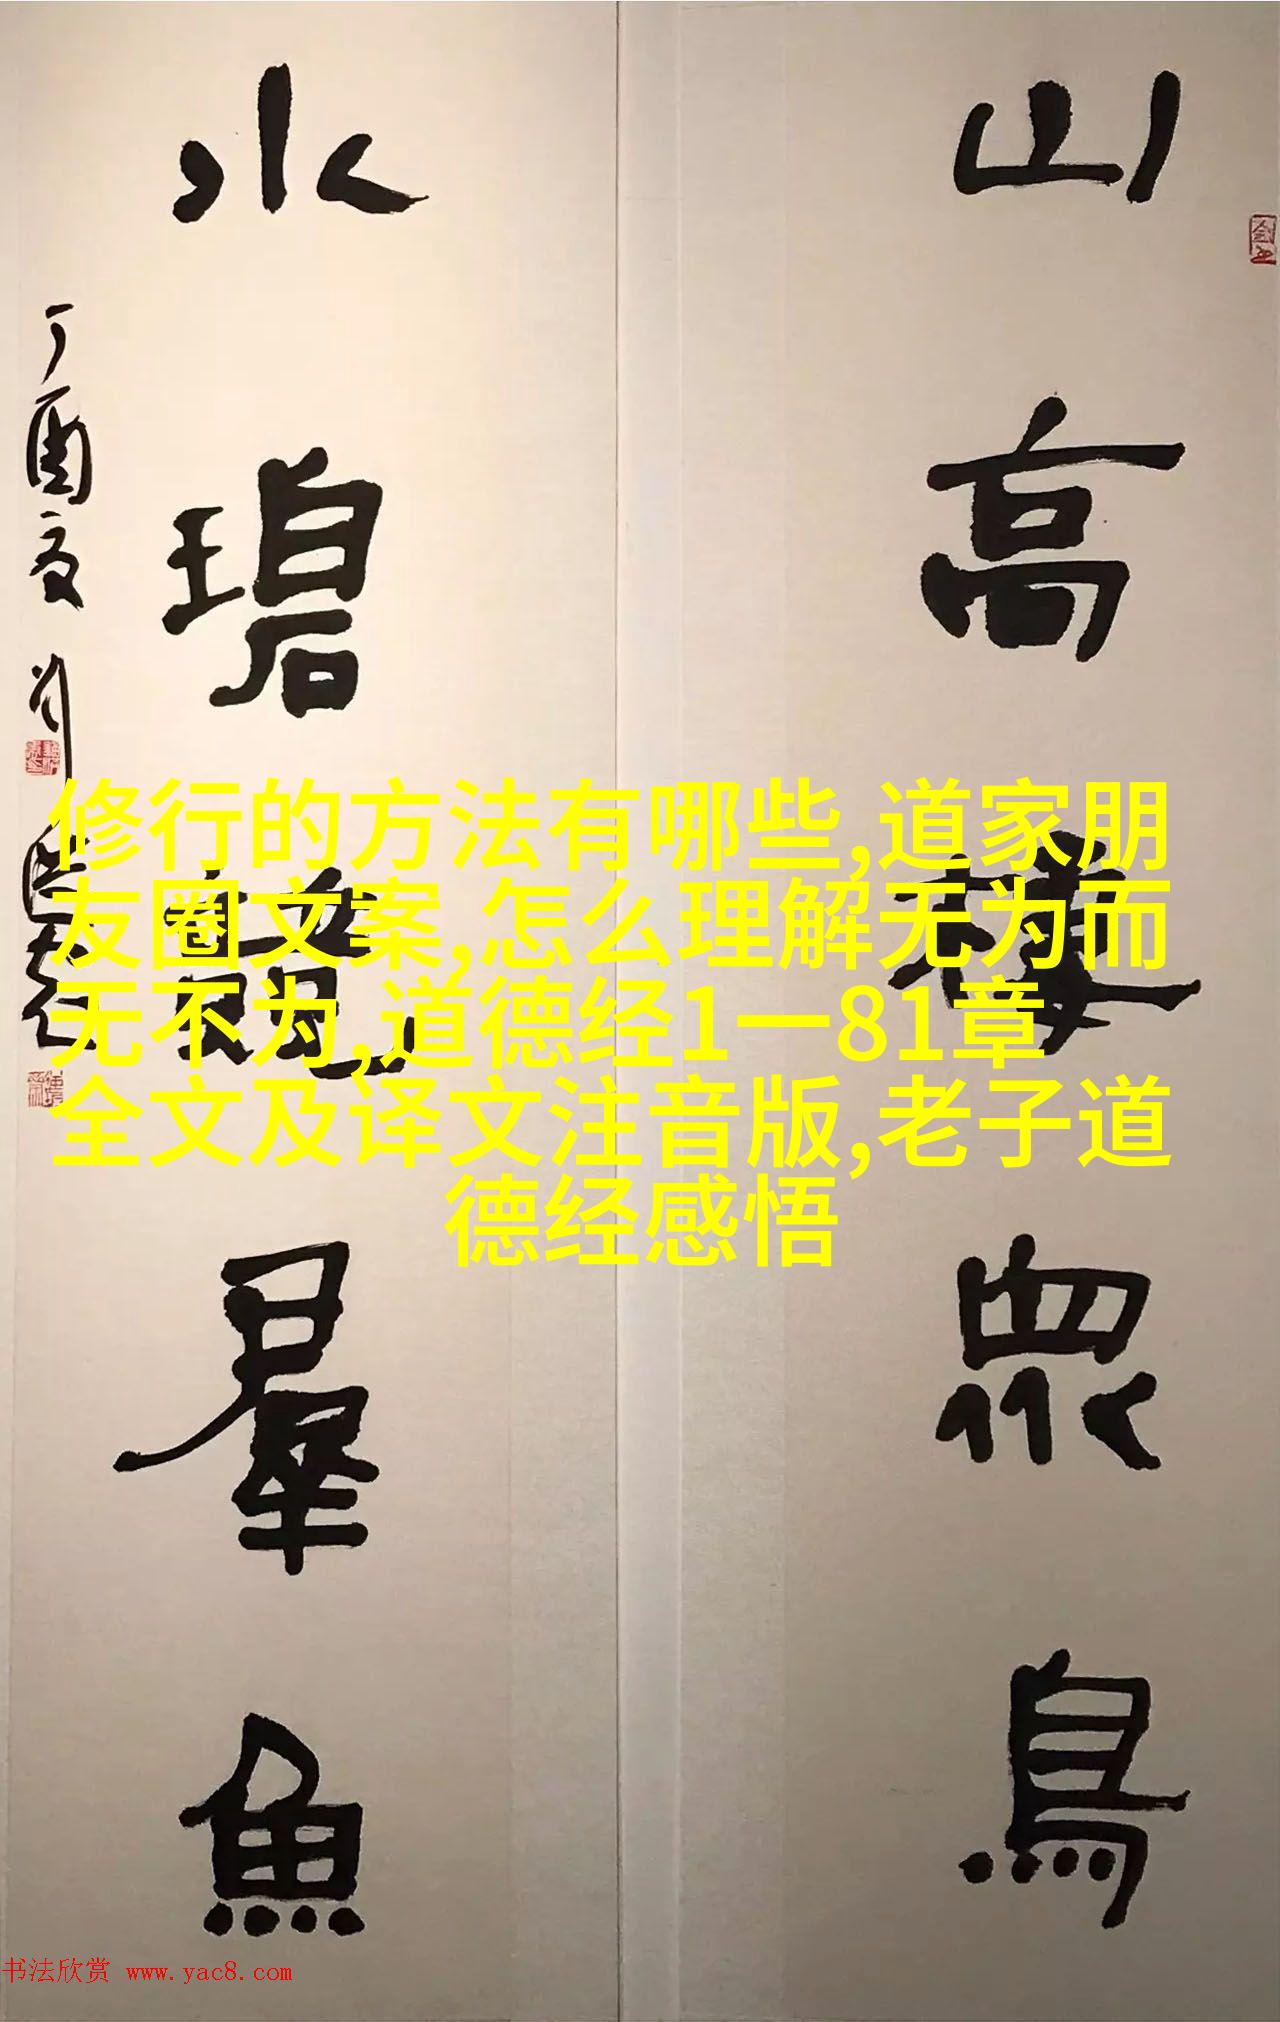 山高棲眾鳥
水碧羣魚
丁酉夏刘
修行的方法有哪些,道家朋
友圈文案,怎么理解无为而
无不为,道德经1一81章
全文及译文注音版,老子道
德经感悟
书法欣赏 www.yac8.com